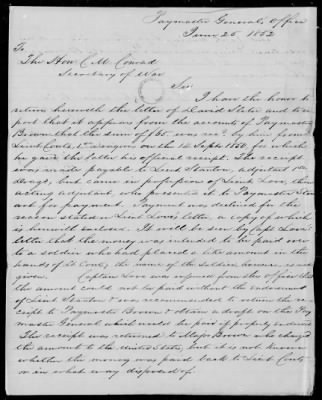 Paymaster General's Office
June 25 1852
To
The Hon C. M. Conrad
Secretary of War
Sir
I have the honor to
return herewith the letter of David State and re
port that it appears from the accounts of Paymaster
Brown that the sum of $65 was recd by him from
Lieut Couts, 1st Dragoons on the 12 Sept 1850, for which
he gave the latter his official receipt. The receipt
was made payable to Lieut Stanton, adjutant 1st
Dragn, but came in possession of Lieut Love, then
acting adjutant who presented it to Paymaster Stew
art for payment. Payment was declined for the
reason stated in Lieut Love's letter, a copy of which
is herewith enclosed. It will be seen by Capt Love's
letter that the money was intended to be paid over
to a soldier who had placed a like amount in the
hands of Lt Couts, the name of the soldier however is not
given. Captain Love was informed from this office that
the amount could not be paid without the endorsement
of Lieut Stanton & was recommended to return the re
ceipt to Paymaster Brown & obtain a draft on the Pay
master General which would be paid if properly endorsed.
The receipt was returned to Major Brown who charged
the amount to the United States, but it is not known
whether the money was paid back to Lieut Couts
or in what way disposed of.